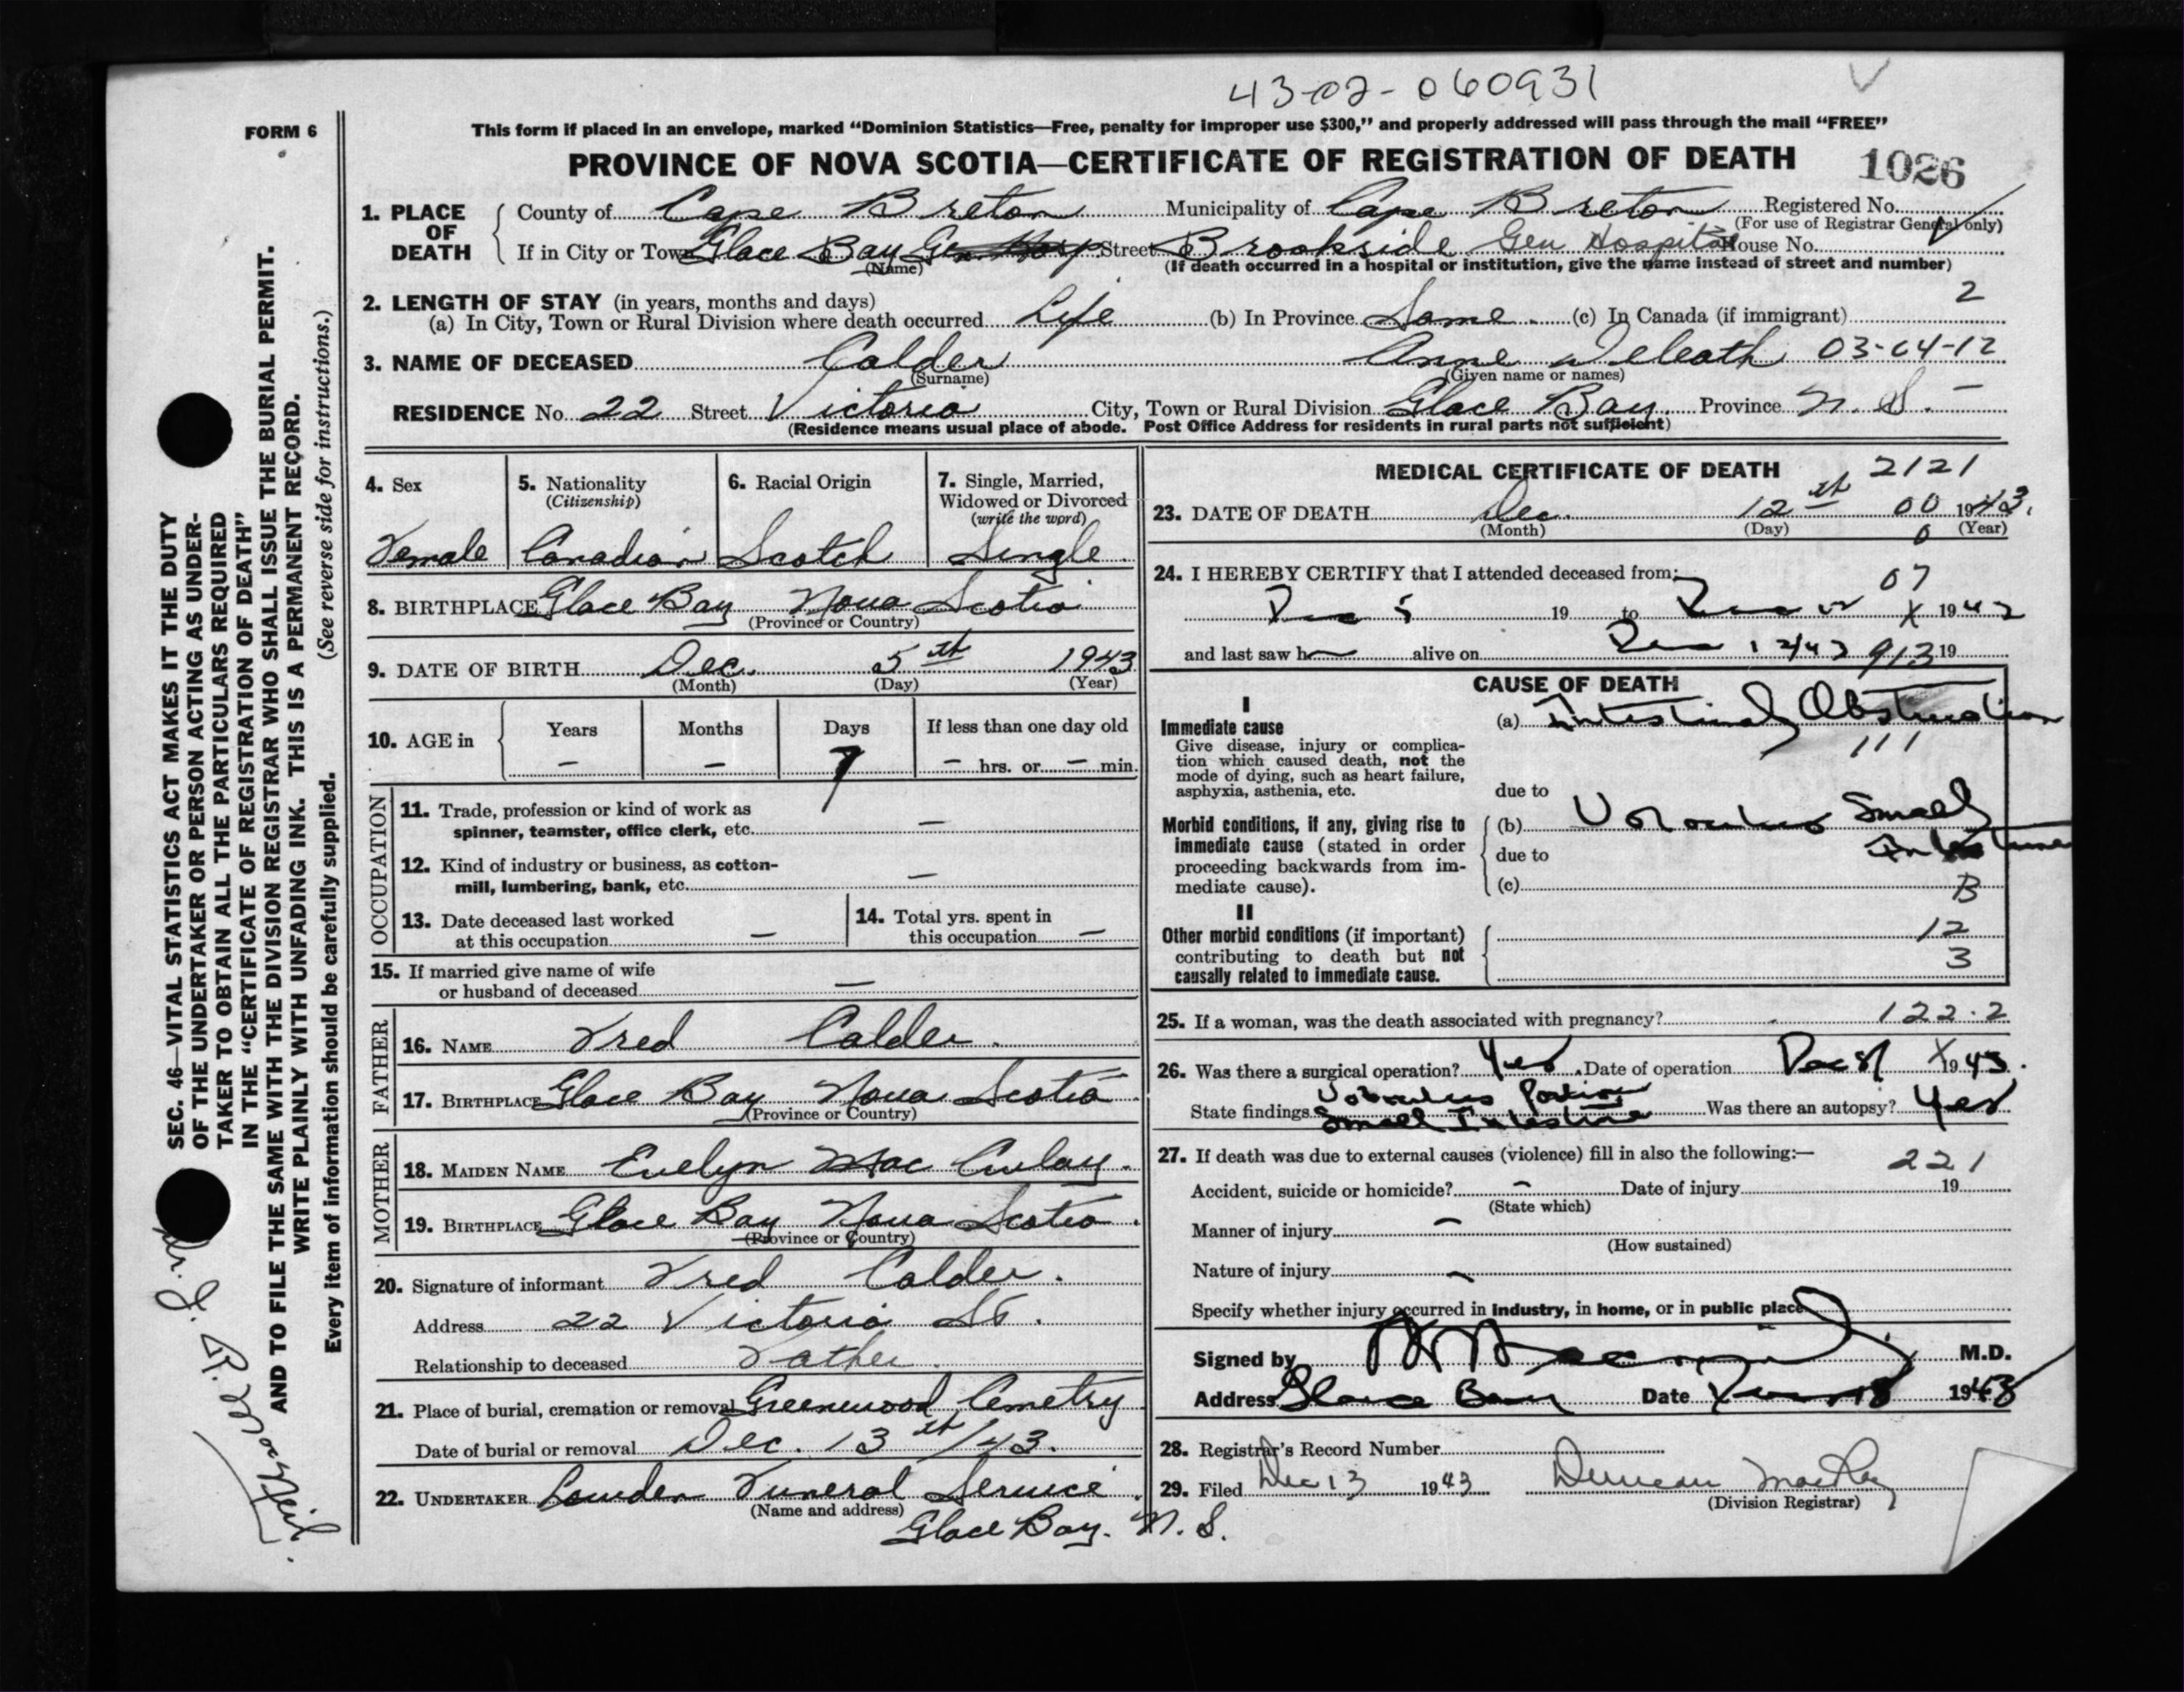 43-02-060931
FORM 6
This form if placed in an envelope, marked “Dominion Statistics—Free, penalty for improper use $300,” and properly addressed will pass through the mail “FREE”
PROVINCE OF NOVA SCOTIA—CERTIFICATE OF REGISTRATION OF DEATH 1026
1. PLACE OF DEATH County of Cape Breton Municipality of Cape Breton Registered No.
(For use of Registrar General only)
If in City or Town Glace Bay Gen. Hosp Street Brookside Gen Hospital House No.
(Name) (If death occurred in a hospital or institution, give the name instead of street and number)
2. LENGTH OF STAY (in years, months and days) 2
(a) In City, Town or Rural Division where death occurred Life (b) In Province Same (c) In Canada (if immigrant)
3. NAME OF DECEASED Calder Anne 03-04-12
(Surname) (Given name or names)
RESIDENCE No. 22 Street Victoria City, Town or Rural Division Glace Bay. Province N. S. —
(Residence means usual place of abode. Post Office Address for residents in rural parts not sufficient)
4. Sex 5. Nationality (Citizenship) 6. Racial Origin 7. Single, Married, Widowed or Divorced (write the word)
Female Canadian Scotch Single
8. BIRTHPLACE Glace Bay Nova Scotia
(Province or Country)
9. DATE OF BIRTH Dec. 5th 1943
(Month) (Day) (Year)
10. AGE in Years Months Days If less than one day old
— — 7 — hrs. or — min.
OCCUPATION
11. Trade, profession or kind of work as
spinner, teamster, office clerk, etc. —
12. Kind of industry or business, as cotton-
mill, lumbering, bank, etc. —
13. Date deceased last worked
at this occupation —
14. Total yrs. spent in
this occupation —
15. If married give name of wife
or husband of deceased —
FATHER
16. NAME Fred Calder.
17. BIRTHPLACE Glace Bay Nova Scotia
(Province or Country)
MOTHER
18. MAIDEN NAME Evelyn Mac Aulay.
19. BIRTHPLACE Glace Bay Nova Scotia.
(Province or Country)
20. Signature of informant Fred Calder.
Address 22 Victoria St.
Relationship to deceased Father.
21. Place of burial, cremation or removal Greenwood Cemetry
Date of burial or removal Dec. 13th/43.
22. UNDERTAKER Lowden Funeral Service.
(Name and address)
Glace Bay. N. S.
MEDICAL CERTIFICATE OF DEATH 2121
23. DATE OF DEATH Dec. 12th 00 1943.
(Month) (Day) 6 (Year)
24. I HEREBY CERTIFY that I attended deceased from: 07
Dec 5 19 to Dec 12 X 1943
and last saw h alive on Dec 12/43 913 19
CAUSE OF DEATH
I
Immediate cause
Give disease, injury or complica-
tion which caused death, not the
mode of dying, such as heart failure,
asphyxia, asthenia, etc.
(a) Intestinal Obstruction
111
due to
Morbid conditions, if any, giving rise to
immediate cause (stated in order
proceeding backwards from im-
mediate cause).
(b) Volvulus Small
due to Intestine
(c) B
II
Other morbid conditions (if important) 12
contributing to death but not 3
causally related to immediate cause.
25. If a woman, was the death associated with pregnancy? 122.2
26. Was there a surgical operation? Yes. Date of operation Dec 8/ X 1943.
State findings Volvulus Portion Small Intestine Was there an autopsy? Yes
27. If death was due to external causes (violence) fill in also the following:— 221
Accident, suicide or homicide? — Date of injury 19
(State which)
Manner of injury —
(How sustained)
Nature of injury —
Specify whether injury occurred in industry, in home, or in public place
Signed by M.D.
Address Glace Bay Date Dec 1943
28. Registrar's Record Number
29. Filed Dec 13 1943 Duncan
(Division Registrar)
SEC. 46—VITAL STATISTICS ACT MAKES IT THE DUTY
OF THE UNDERTAKER OR PERSON ACTING AS UNDER-
TAKER TO OBTAIN ALL THE PARTICULARS REQUIRED
IN THE “CERTIFICATE OF REGISTRATION OF DEATH”
AND TO FILE THE SAME WITH THE DIVISION REGISTRAR WHO SHALL ISSUE THE BURIAL PERMIT.
WRITE PLAINLY WITH UNFADING INK. THIS IS A PERMANENT RECORD.
Every item of information should be carefully supplied. (See reverse side for instructions.)